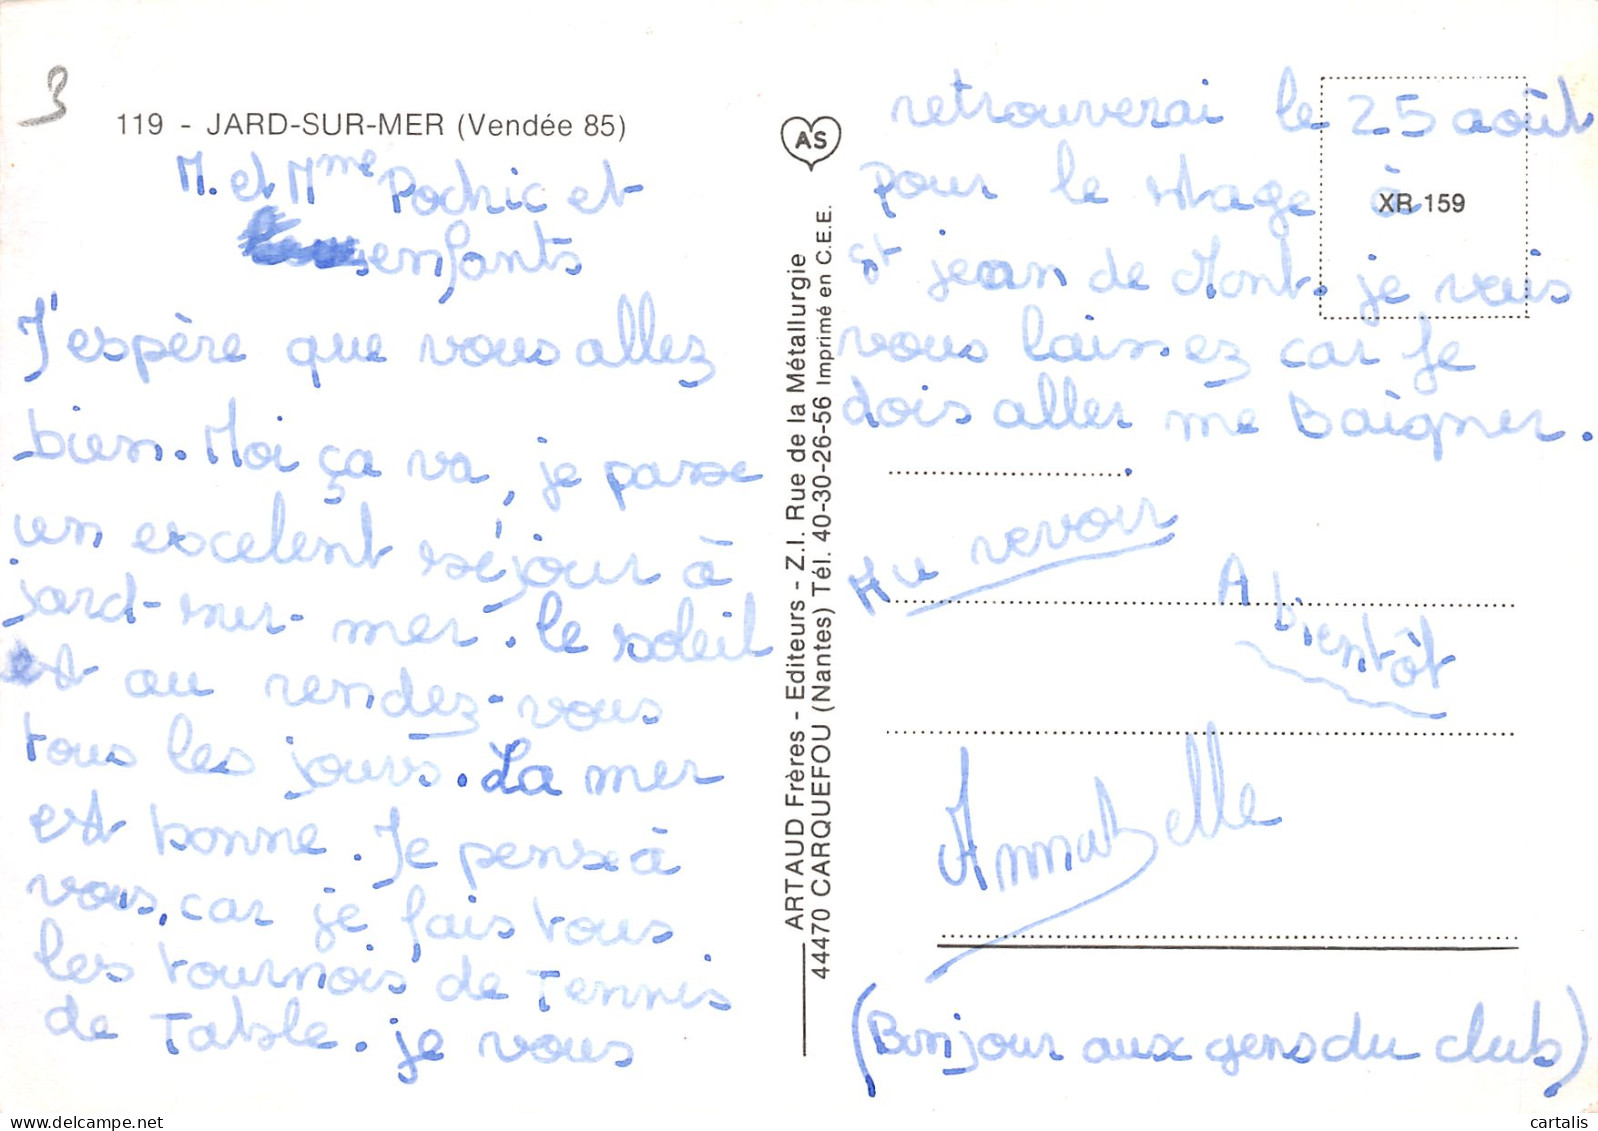 3
119 - JARD-SUR-MER (Vendée 85)
M. et Mme Pochic et
enfants
J'espère que vous allez
bien. Moi ça va, je passe
un excelent séjour à
jard-sur-mer. le soleil
est au rendez-vous
tous les jours. La mer
est bonne. Je pense à
vous, car je fais tous
les tournois de Tennis
de Table. je vous
AS
ARTAUD Frères - Editeurs - Z.I. Rue de la Métallurgie
44470 CARQUEFOU (Nantes) Tél. 40-30-26-56 Imprimé en C.E.E.
XR 159
retrouverai le 25 août
pour le stage à
St jean de Mont. je vais
vous laissez car Je
dois aller me Baigner.
Au revoir
A bientôt
Annabelle
(Bonjour aux gens du club)
cartalis